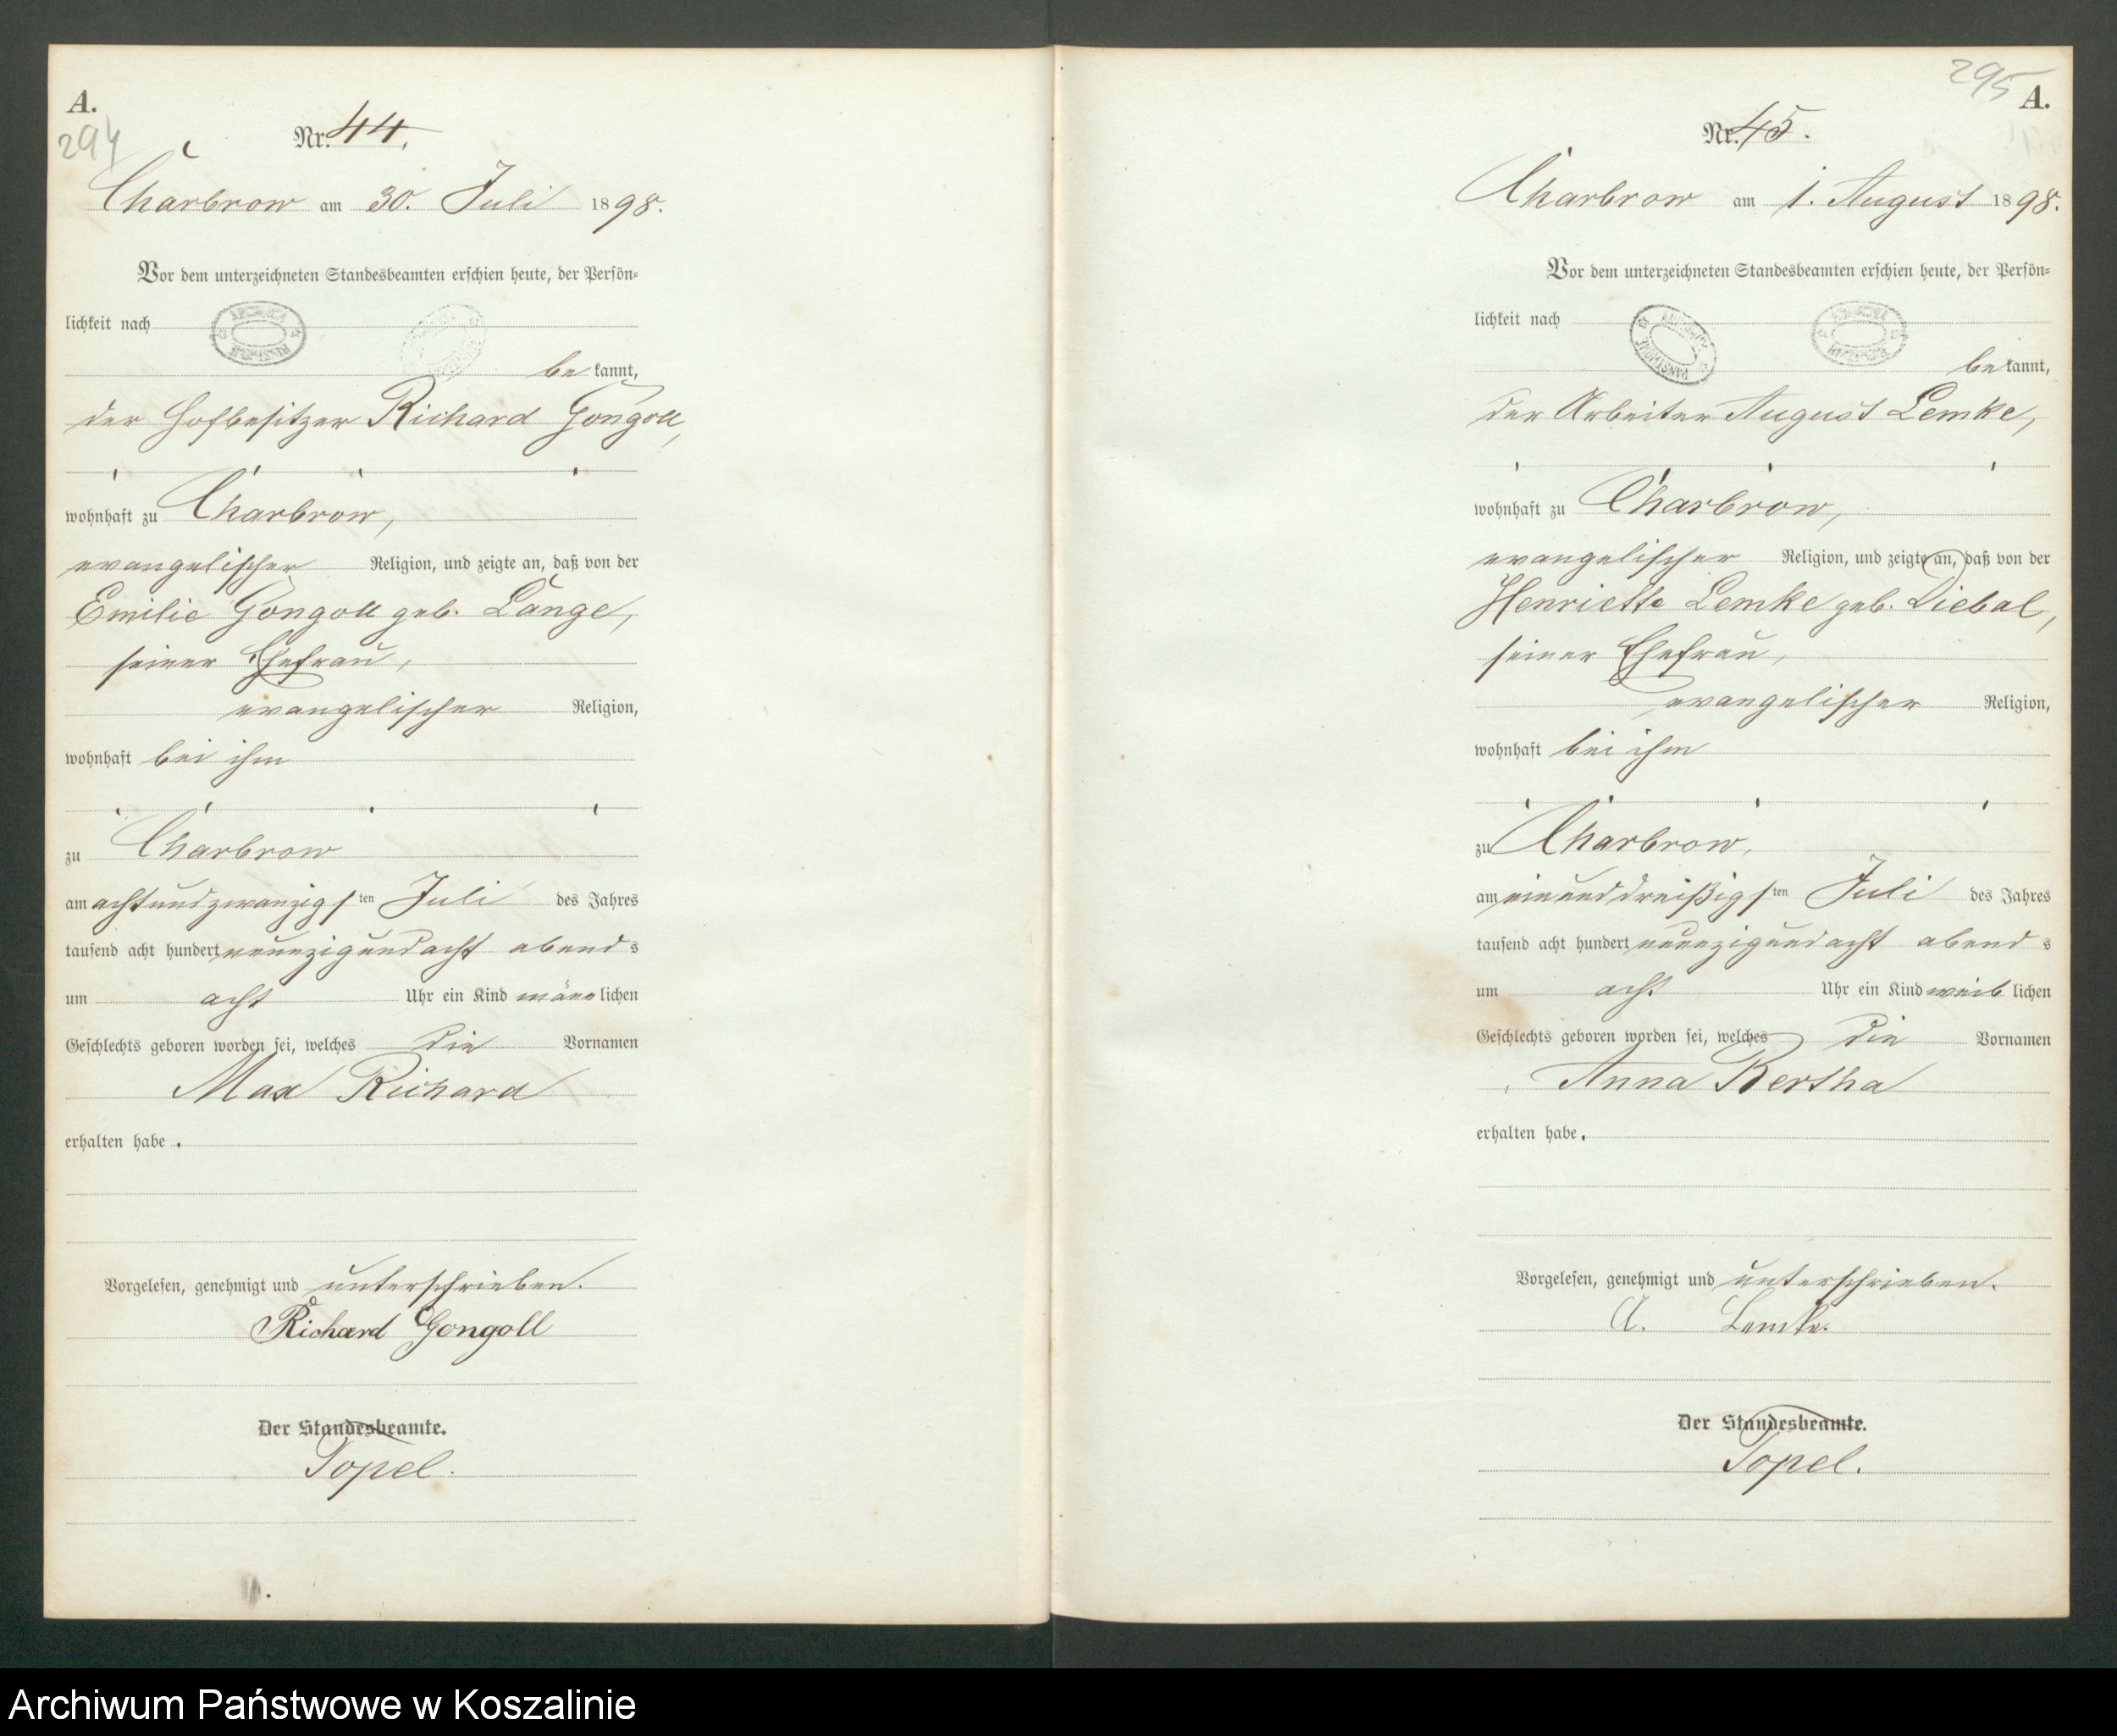 A.
294
Nr. 44.
Charbrow am 30. Juli 1898.
Vor dem unterzeichneten Standesbeamten erschien heute, der Persön-
lichkeit nach
be kannt,
der Hofbesitzer Richard Gongoll,
wohnhaft zu Charbrow,
evangelischer Religion, und zeigte an, daß von der
Emilie Gongoll geb. Lange,
seiner Ehefrau,
evangelischer Religion,
wohnhaft bei ihm
zu Charbrow
am achtundzwanzigsten Juli des Jahres
tausend acht hundert neunzigundacht abends
um acht Uhr ein Kind männlichen
Geschlechts geboren worden sei, welches die Vornamen
Max Richard
erhalten habe.
Vorgelesen, genehmigt und unterschrieben.
Richard Gongoll
Der Standesbeamte.
Topel.
295
A.
Nr. 45.
Charbrow am 1. August 1898.
Vor dem unterzeichneten Standesbeamten erschien heute, der Persön-
lichkeit nach
be kannt,
der Arbeiter August Lemke,
wohnhaft zu Charbrow,
evangelischer Religion, und zeigte an, daß von der
Henriette Lemke geb. Diebal,
seiner Ehefrau,
evangelischer Religion,
wohnhaft bei ihm
zu Charbrow,
am einunddreißigsten Juli des Jahres
tausend acht hundert neunzigundacht abends
um acht Uhr ein Kind weiblichen
Geschlechts geboren worden sei, welches die Vornamen
Anna Bertha
erhalten habe.
Vorgelesen, genehmigt und unterschrieben.
A. Lemke.
Der Standesbeamte.
Topel.
Archiwum Państwowe w Koszalinie